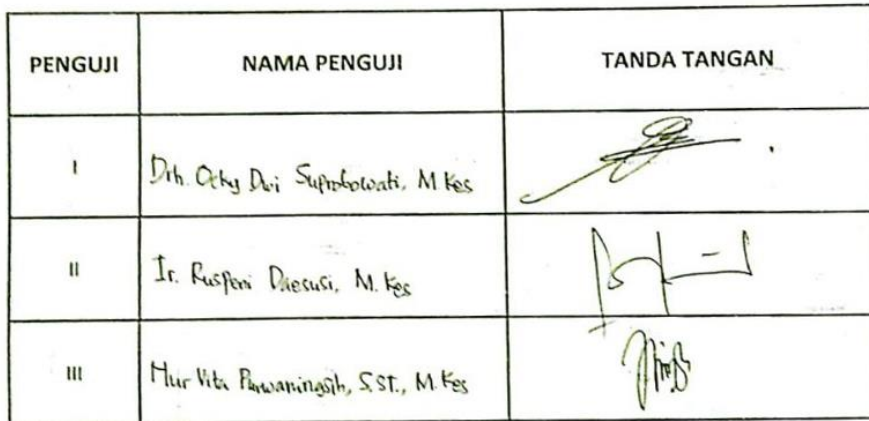 PENGUJI NAMA PENGUJI TANDA TANGAN
I Drh. Ocky Dwi Suprobowati, M.Kes
II Ir. Ruspeni Daesusi, M.Kes
III Nur Vita Purwaningsih, S.ST., M.Kes